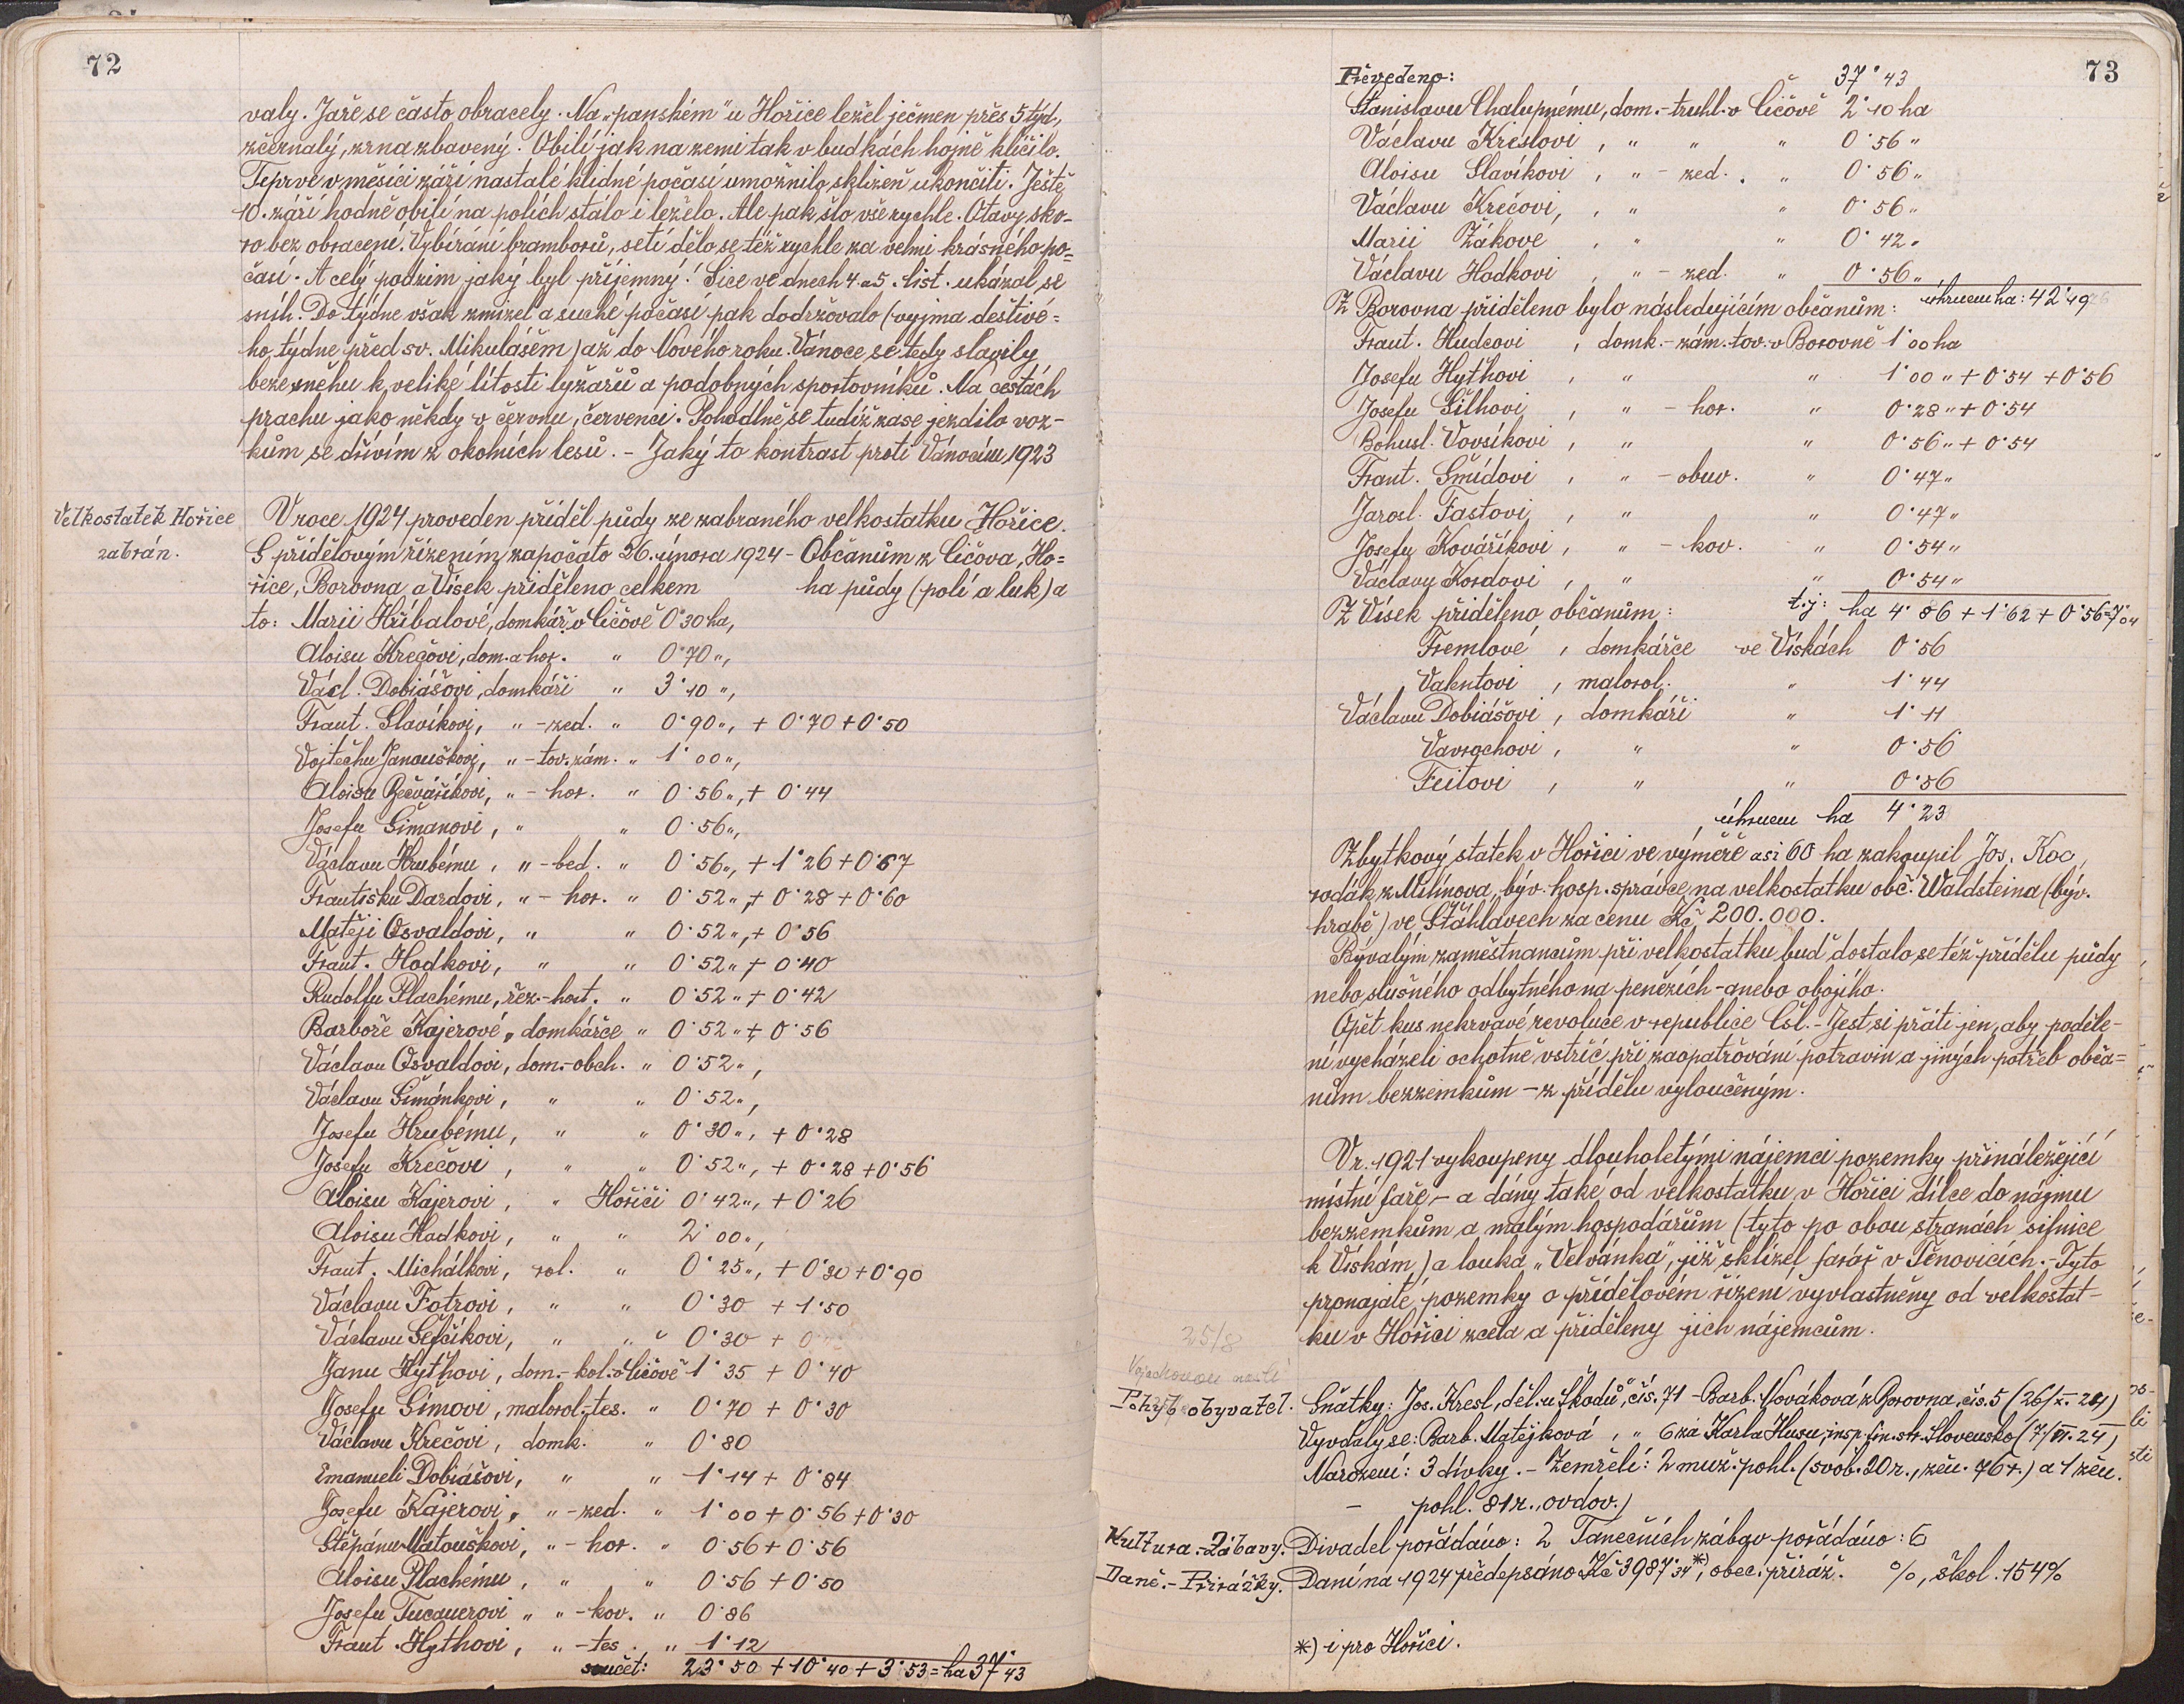 72
valy. Jaře se často obracely. Na „panském" u Hořice ležel ječmen přes 5 týd.,
zčernalý, zrna zbavený. Obilí jak na zemi tak v budkách hojně klíčilo.
Teprve v měsíci září nastalé klidné počasí umožnilo sklizeň ukončiti. Ještě
10. září hodně obilí na polích stálo i leželo. Ale pak šlo vše rychle. Otavy sko-
ro bez obracení. Vybírání bramborů, setí dělo se též rychle za velmi krásného po=
časí. A celý podzim jaký byl příjemný! Sice ve dnech 4. a 5. list. ukázal se
sníh. Do týdne však zmizel a suché počasí pak dodržovalo (vyjma deštivé=
ho týdne před sv. Mikulášem) až do Nového roku. Vánoce se tedy slavily
beze sněhu k veliké lítosti lyžařů a podobných sportovníků. Na cestách
prachu jako někdy v červnu, červenci. Pohodlně se tudíž zase jezdilo voz-
kům se dřívím z okolních lesů. - Jaký to kontrast proti Vánocím 1923
Velkostatek Hořice
zabrán.
V roce 1924 proveden příděl půdy ze zabraného velkostatku Hořice.
S přídělovým řízením započato 26. února 1924 - Občanům z Čičova, Ho=
řice, Borovna a Vísek přiděleno celkem ha půdy (polí a luk) a
to: Marii Hříbalové, domkář. v Čičově 0·30 ha,
Aloisu Krečovi, dom. a hor. " 0·70 ",
Václ. Dobiášovi, domkáři " 3·10 ",
Frant. Slavíkovi, " - zed. " 0·90 ", + 0·70 + 0·50
Vojtěchu Janouškovi, " - tov. zám. " 1·00 ",
Aloisu Bečváříkovi, " - hor. " 0·56 ", + 0·44
Josefu Šimanovi, " " 0·56 ",
Václavu Hrubému, " - bed. " 0·56 ", + 1·26 + 0·67
Františku Dardovi, " - hor. " 0·52 ", + 0·28 + 0·60
Matěji Osvaldovi, " " 0·52 ", + 0·56
Frant. Hodkovi, " " 0·52 " + 0·40
Rudolfu Plachému, řez.-host. " 0·52 " + 0·42
Barboře Kajerové, domkářce " 0·52 " + 0·56
Václavu Osvaldovi, dom.-obch. " 0·52 ",
Václavu Šimánkovi, " " 0·52 ",
Josefu Hrubému, " " 0·30 ", + 0·28
Josefu Krečovi, " " 0·52 ", + 0·28 + 0·56
Aloisu Kajerovi, " Hořici 0·42 ", + 0·26
Aloisu Hadkovi, " " 2·00 ",
Frant. Michálkovi, rol. " 0·25 ", + 0·30 + 0·90
Václavu Fotrovi, " " 0·30 + 1·50
Václavu Šefčíkovi, " " 0·30 + 0
Janu Hýthovi, dom.-kol. v Čičově 1·35 + 0·40
Josefu Šimovi, malorol.-tes. " 0·70 + 0·30
Václavu Krečovi, domk. " 0·80
Emanueli Dobiášovi, " " 1·14 + 0·84
Josefu Kajerovi, " - zed. " 1·00 + 0·56 + 0·30
Štěpánu Matouškovi, " - hor. " 0·56 + 0·56
Aloisu Plachému, " " 0·56 + 0·50
Josefu Tucauerovi " " - kov. " 0·86
Frant. Hythovi, " - tes. " 1·12
součet: 23·50 + 10·40 + 3·53 = ha 37·43
73
Převedeno: 37·43
Stanislavu Chalupnému, dom.-truhl. v Čičově 2·10 ha
Václavu Kreslovi, " " " 0·56 "
Aloisu Slavíkovi, " - zed. " 0·56 "
Václavu Krečovi, " " 0·56 "
Marii Žákové, " " 0·42 "
Václavu Hodkovi, " - zed. " 0·56 "
úhrnem ha: 42·19
Z Borovna přiděleno bylo následujícím občanům:
Frant. Hudcovi, domk.-zám. tov. v Borovně 1·00 ha
Josefu Hythovi, " " 1·00 " + 0·54 + 0·56
Josefu Šilhovi, " - hor. " 0·28 " + 0·54
Bohusl. Vovsíkovi, " " 0·56 " + 0·54
Frant. Šmídovi, " - obuv. " 0·47 "
Jarosl. Fastovi, " " 0·47 "
Josefu Kováříkovi, " - kov. " 0·54 "
Václavu Kordovi, " " 0·54 "
t.j: ha 4·86 + 1·62 + 0·56 = 7·04
Z Vísek přiděleno občanům:
Fremlové, domkářce ve Vískách 0·56
Valentovi, malorol. " 1·44
Václavu Dobiášovi, domkáři " 1·11
Vavrochovi, " " 0·56
Feitovi, " " 0·56
úhrnem ha 4·23
Zbytkový statek v Hořici ve výměře asi 60 ha zakoupil Jos. Koc,
rodák z Milínova, býv. hosp. správce na velkostatku obč. Waldsteina (býv.
hrabě) ve Šťáhlavech za cenu Kč 200.000.
Bývalým zaměstnancům při velkostatku buď dostalo se též přídělu půdy
nebo slušného odbytného na penězích - anebo obojího.
Opět kus nekrvavé revoluce v republice Čsl. - Jest si přáti jen, aby poděle-
ní vycházeli ochotně vstříc při zaopatřování potravin a jiných potřeb obča=
nům bezzemkům - z přídělu vyloučeným.
V r. 1921 vykoupeny dlouholetými nájemci pozemky přináležející
místní faře - a dány také od velkostatku v Hořici dílce do nájmu
bezzemkům a malým hospodářům (tyto po obou stranách silnice
k Vískám) a louka „Velvánka", již sklízel farář v Těnovicích. - Tyto
pronajaté pozemky o přídělovém řízení vyvlastněny od velkostat-
ku v Hořici zcela a přiděleny jich nájemcům.
25/8
Pohyb obyvatel.
Sňatky: Jos. Kresl, děl. u Škodů, čís. 71 - Barb. Nováková z Borovna, čís. 5 (26/X. 24)
Vyvdaly se: Barb. Matějková, " 6 za Karla Husu, insp. fin. str. Slovensko (7/VI. 24)
Narození: 3 dívky. - Zemřelí: 2 muž. pohl. (svob. 20 r., žen. 76 r.) a 1 žen.
- pohl. 81 r., ovdov.)
Kultura.-Zábavy.
Divadel pořádáno: 2 Tanečních zábav pořádáno: 6
Daně.-Přirážky.
Daní na 1924 předepsáno Kč 3987·34 *), obec. přiráž. %, škol. 154%
*) i pro Hořici.